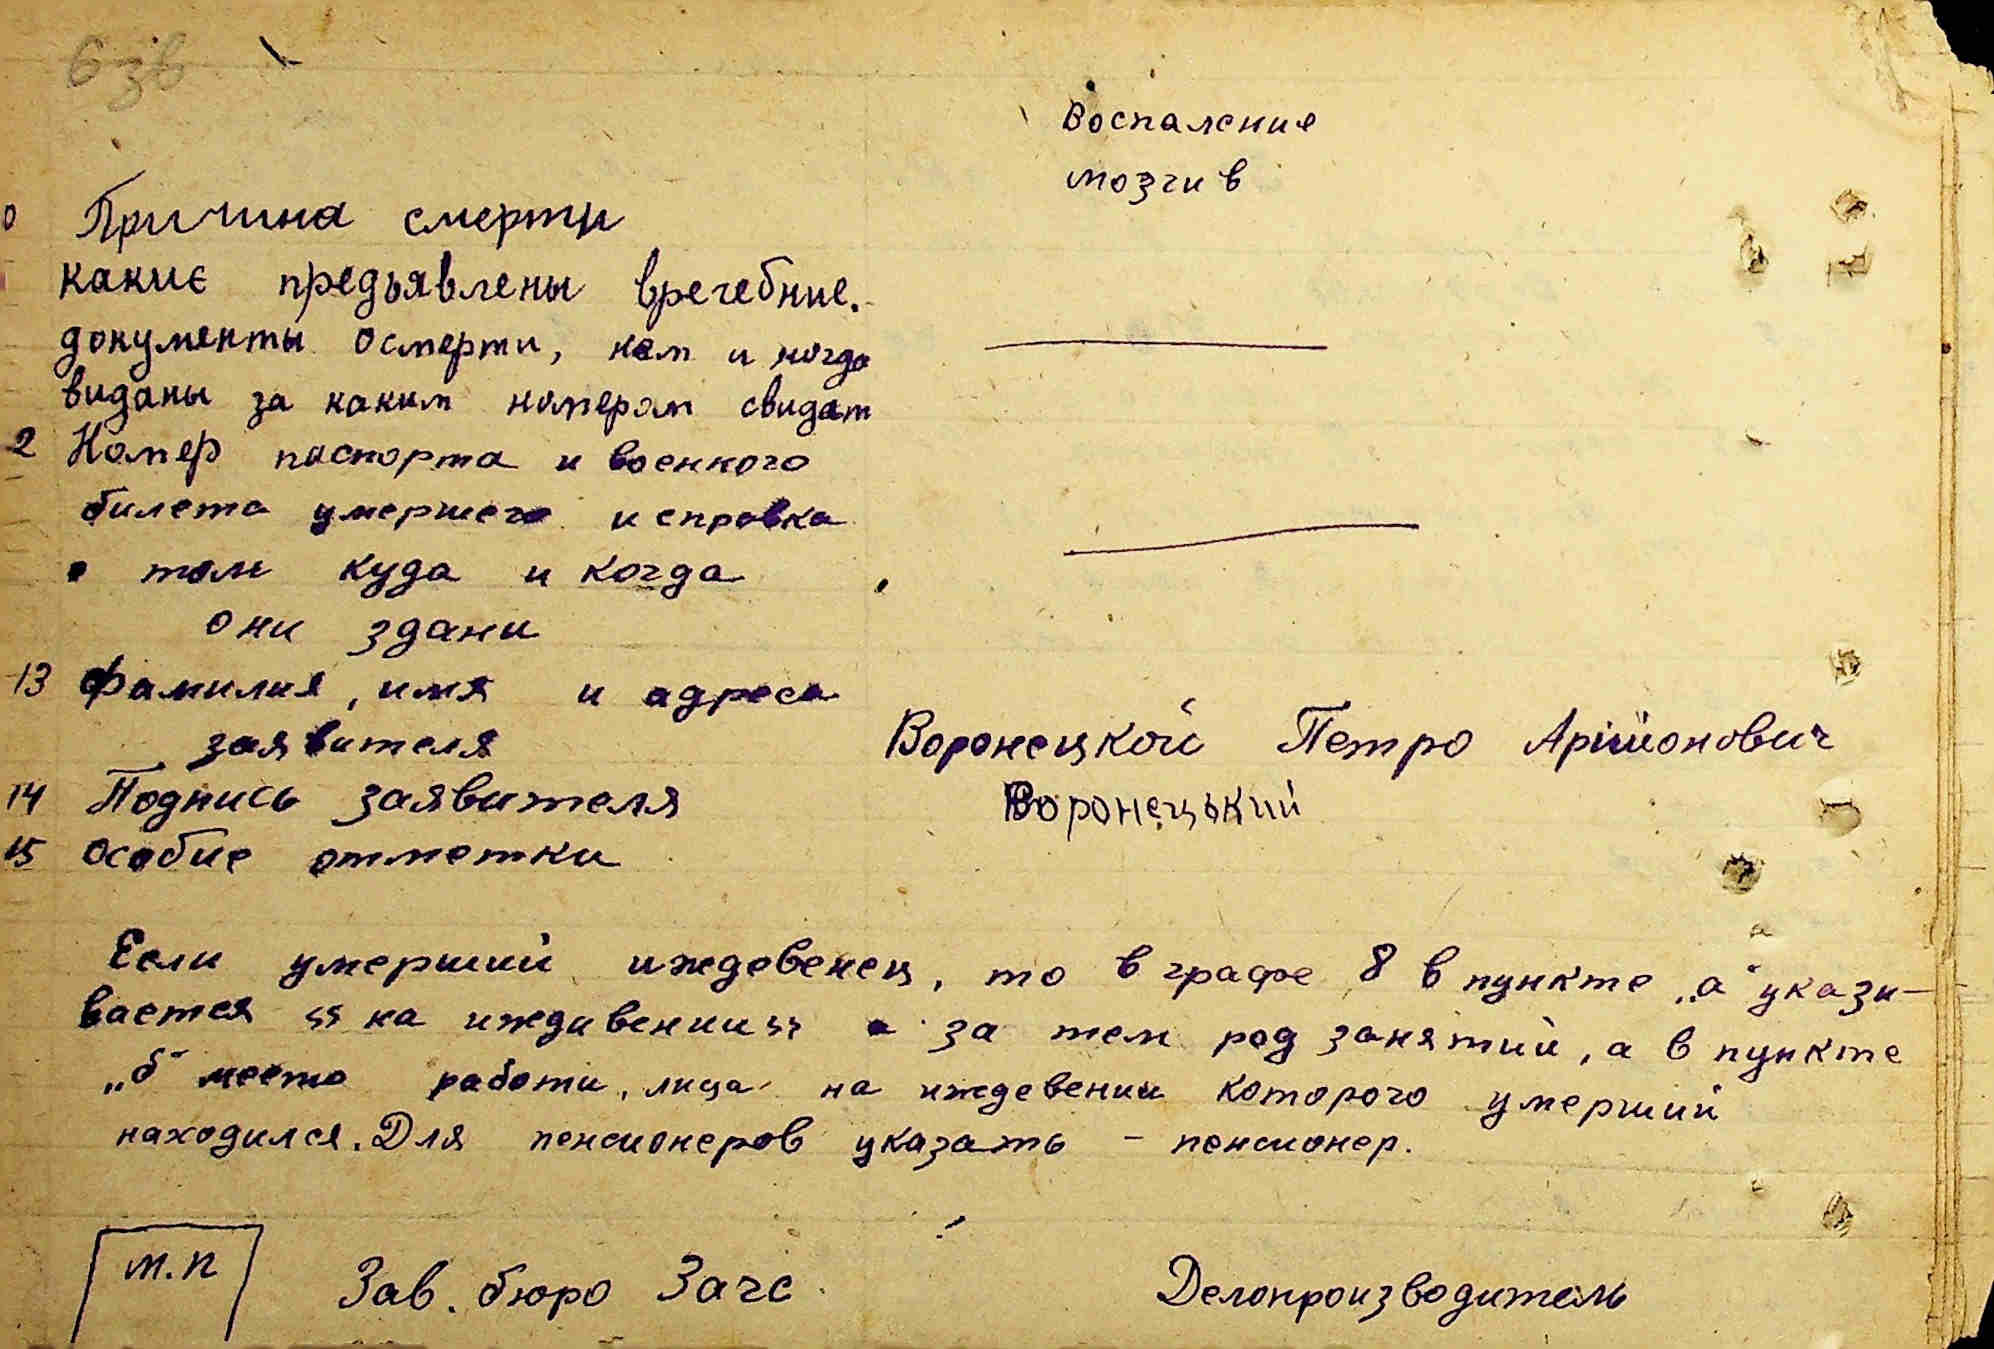 6 зв
Воспаление
мозгив
0 Причина смерти
какиє предьявлены вречебние.
документы осмерти, кем и когда
виданы за каким номером свидет
2 Номер паспорта и военного
билета умершего и справка
о том куда и когда
они здани
13 Фамилия, имя и адреса
заявителя
Воронецкой Петро
14 Подпись заявителя Воронецький
15 особие отметки
Если умерший иждевенец, то в графе 8 в пункте „а" укази-
вается „на иждивении" а за тем род занятий, а в пункте
„б" место работи, лица на иждевении которого умерший
находился. Для пенсионеров указать - пенсионер.
м.п Зав. бюро Загс Делопроизводитель